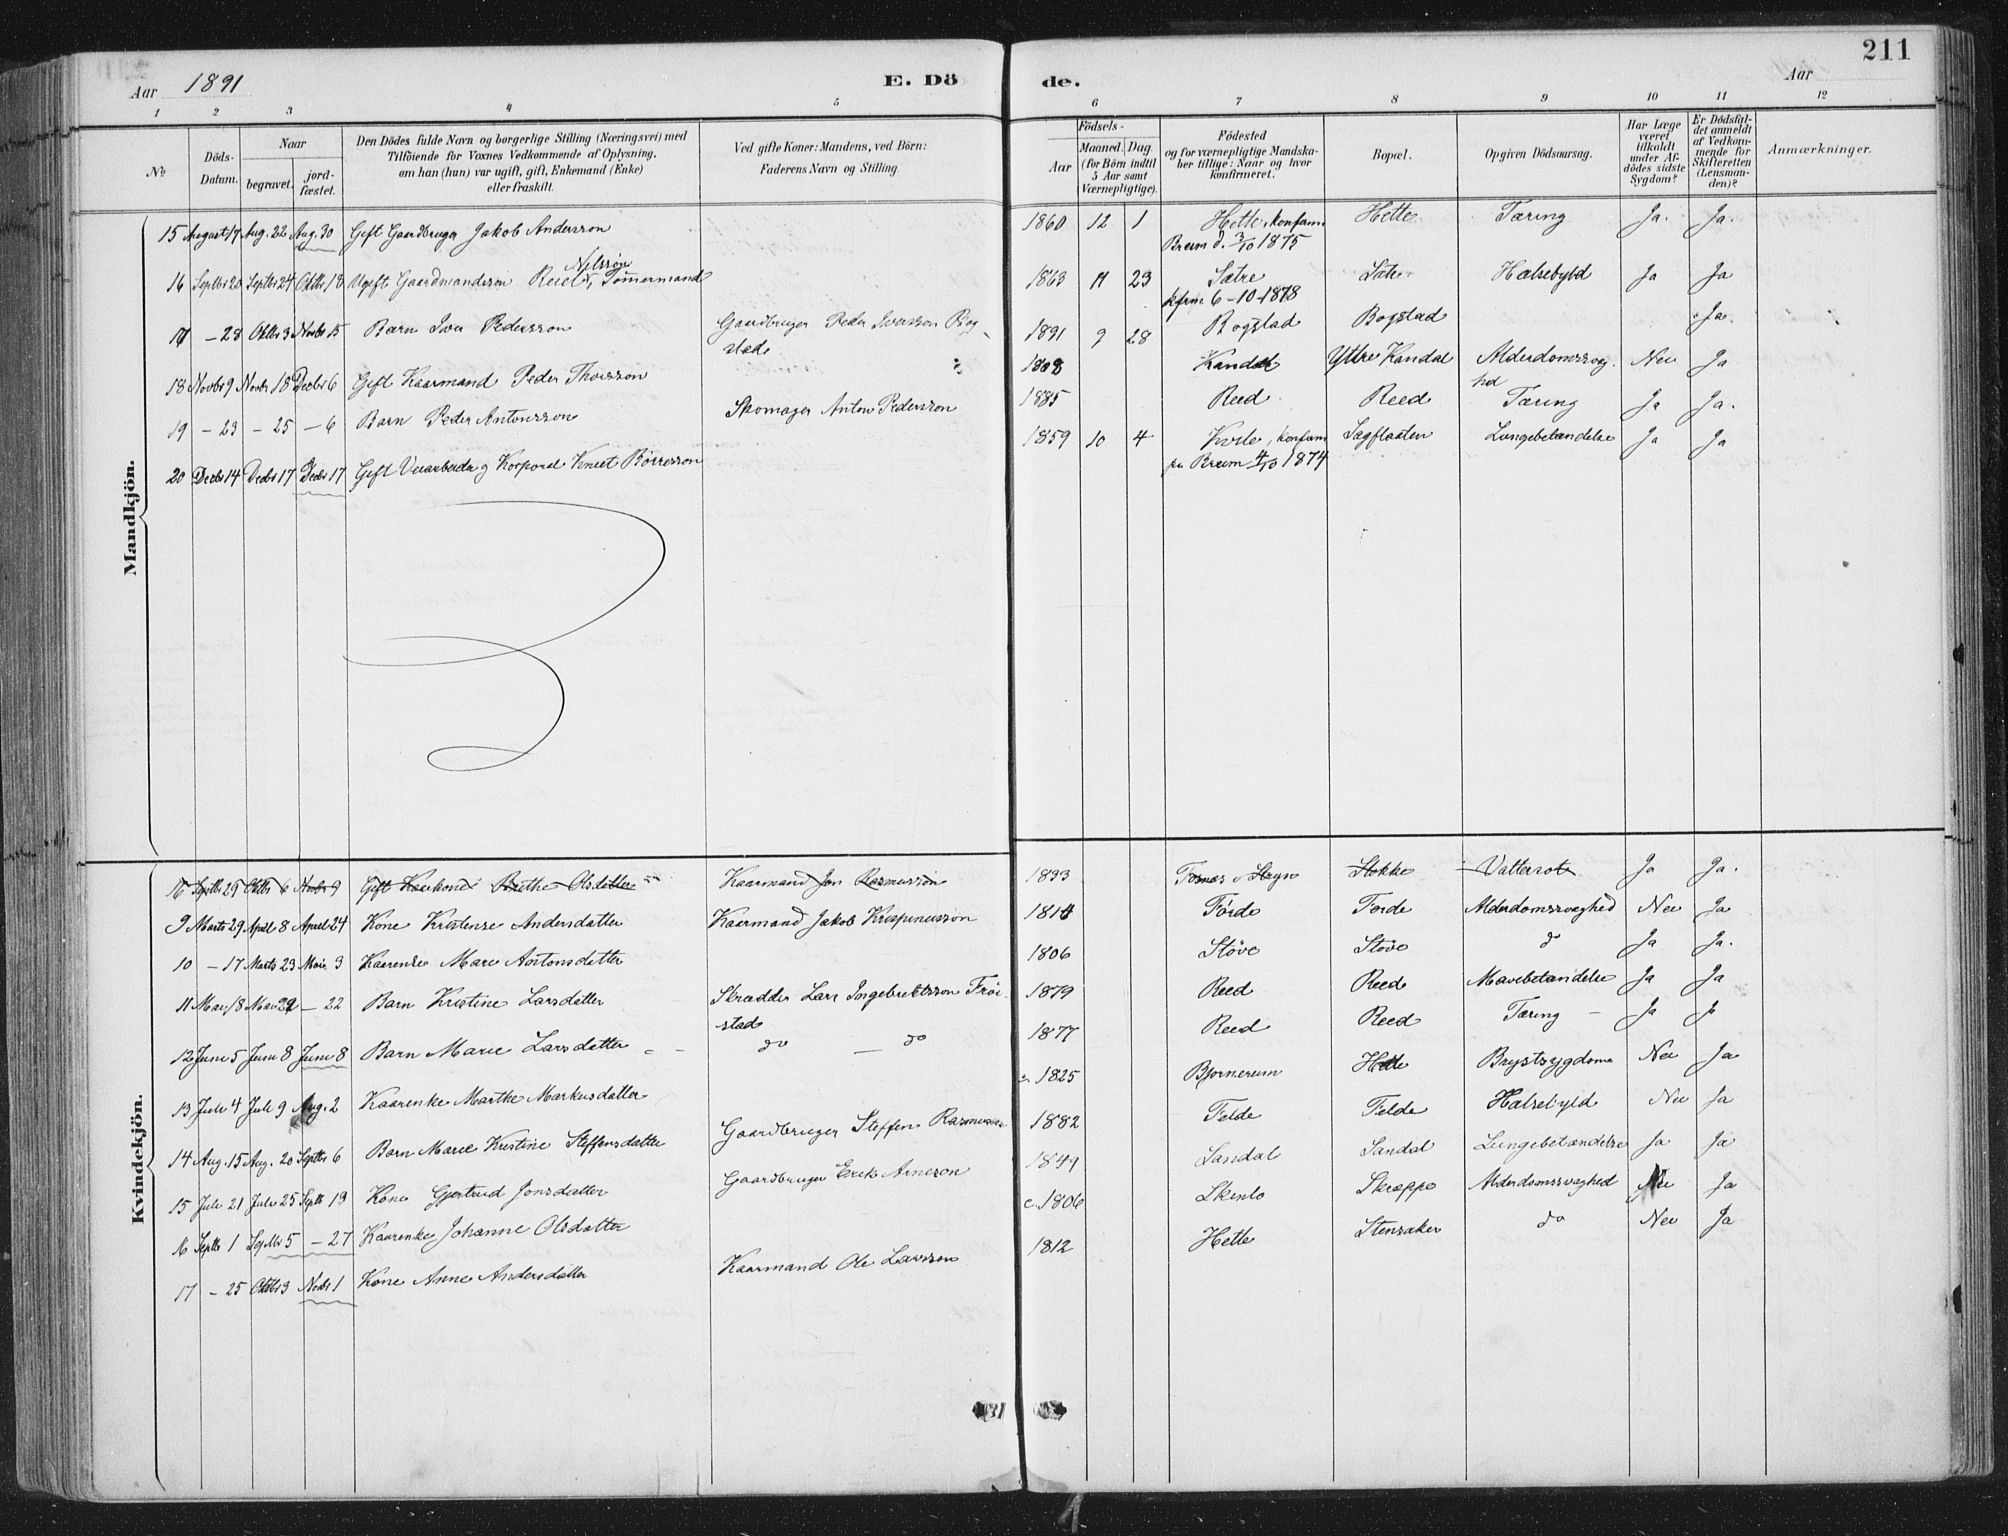 211
Aar 1891
E. Dö
de.
Aar
1 2 3 4 5 6 7 8 9 10 11 12
№
Döds-Datum.
Naar
begravet.
jord-fæstet.
Den Dödes fulde Navn og borgerlige Stilling (Næringsvei) med
Tilföiende for Voxnes Vedkommende af Oplysning,
om han (hun) var ugift, gift, Enkemand (Enke)
eller fraskilt.
Ved gifte Koner: Mandens, ved Börn:
Faderens Navn og Stilling.
Födsels-
Aar
Maaned. Dag.
(for Börn indtil
5 Aar samt
Værnepligtige).
Födested
og for værnepligtige Mandska-
ber tillige: Naar og hvor
konfirmeret.
Bopæl.
Opgiven Dödsaarsag.
Har Læge
været
tilkaldt
under Af-
dödes sidste
Sygdom?
Er Dödsfal-
det anmeldt
af Vedkom-
mende for
Skifteretten
(Lensman-
den)?
Anmærkninger.
Mandkjön.
15 August 17 Aug. 22 Aug. 30 Gift Gaardbruger Jakob Andersson 1860 12 1 Hette, konfirm. Hette Tæring Ja. Ja.
Breim d. 3/10 1875
Nilssøn
16 Septbr 20 Septbr 24 Oktbr 18 Ugift Gaardmandssøn Reiel, Tømmermand 1863 11 23 Sætre Halsebyld Ja Ja
kfrm. 6-10-1878
17 - 28 Oktbr 3 Novbr 15 Barn Iver Pedersson Gaardbruger Peder Iversson Bog- 1891 9 28 Bogstad Bogstad Ja.
stad
18 Novbr 9 Novbr 18 Decbr 6 Gift Kaarmand Peder Thorsson 1808 Kandal Yttre Kandal Alderdomssvag- Nei Ja
hed
19 - 23 - 25 - 6 Barn Peder Antonsson Skomager Anton Pedersson 1885 Reed Reed Tæring Ja Ja.
20 Decbr 14 Decbr 17 Decbr 17 Gift Veiarbeider og Korporal Knut Børresson 1859 10 4 Kvile, konfirm Sagflaaten Lungebetændelse Ja Ja
fra Breim 4/10 1874
Kvindekjön.
16 Septbr 29 Oktbr 6 Novbr 9 Gift Kaarkone Brithe Olsdatter Kaarmand Jon Rasmussøn 1833 Tosnas i Stryn Stokke Vattersot Ja Ja.
9 Marts 29 April 8 April 24 Kone Kristense Andersdatter Kaarmand Jakob Krispinusson 1814 Förde Förde Alderdomssvaghed Nei Ja
10 - 17 Marts 23 Mai 3 Kaarenke Mari Antonsdatter 1806 Støve Støve do Ja Ja.
11 Mai 18 Mai 22 - 22 Barn Kristine Larsdatter Skrædder Lars Ingebrektsson Frøi- 1879 Reed Reed Mavebetændelse Ja Ja
stad
12 Juni 5 Juni 8 Juni 8 Barn Marie Larsdatter do - do 1877 Reed Reed Tæring - Ja Ja
13 Juli 4 Juli 9 Aug. 2 Kaarenke Marthe Markusdatter c. 1825 Bjørnerum Hette Brystsygdom Nei Ja
14 Aug. 15 Aug. 20 Septbr 6 Barn Marie Kristine Steffensdatter Gaardbruger Steffen Rasmussen 1882 Felde Felde Halsebyld Nei Ja
15 Juli 21 Juli 25 Septbr 13 Kone Gjertrud Jonsdatter Gaardbruger Erik Arneson 1849 Sandal Sandal Lungebetændelse Ja Ja
16 Septbr 1 Septbr 5 - 27 Kaarenke Johanne Olsdatter c. 1806 Skinlo Skræppe Alderdomssvaghed Nei Ja
17 - 25 Oktbr 3 Novbr 1 Kone Anne Andersdatter Kaarmand Ole Larsson 1812 Hette Stensaker do Nei Ja